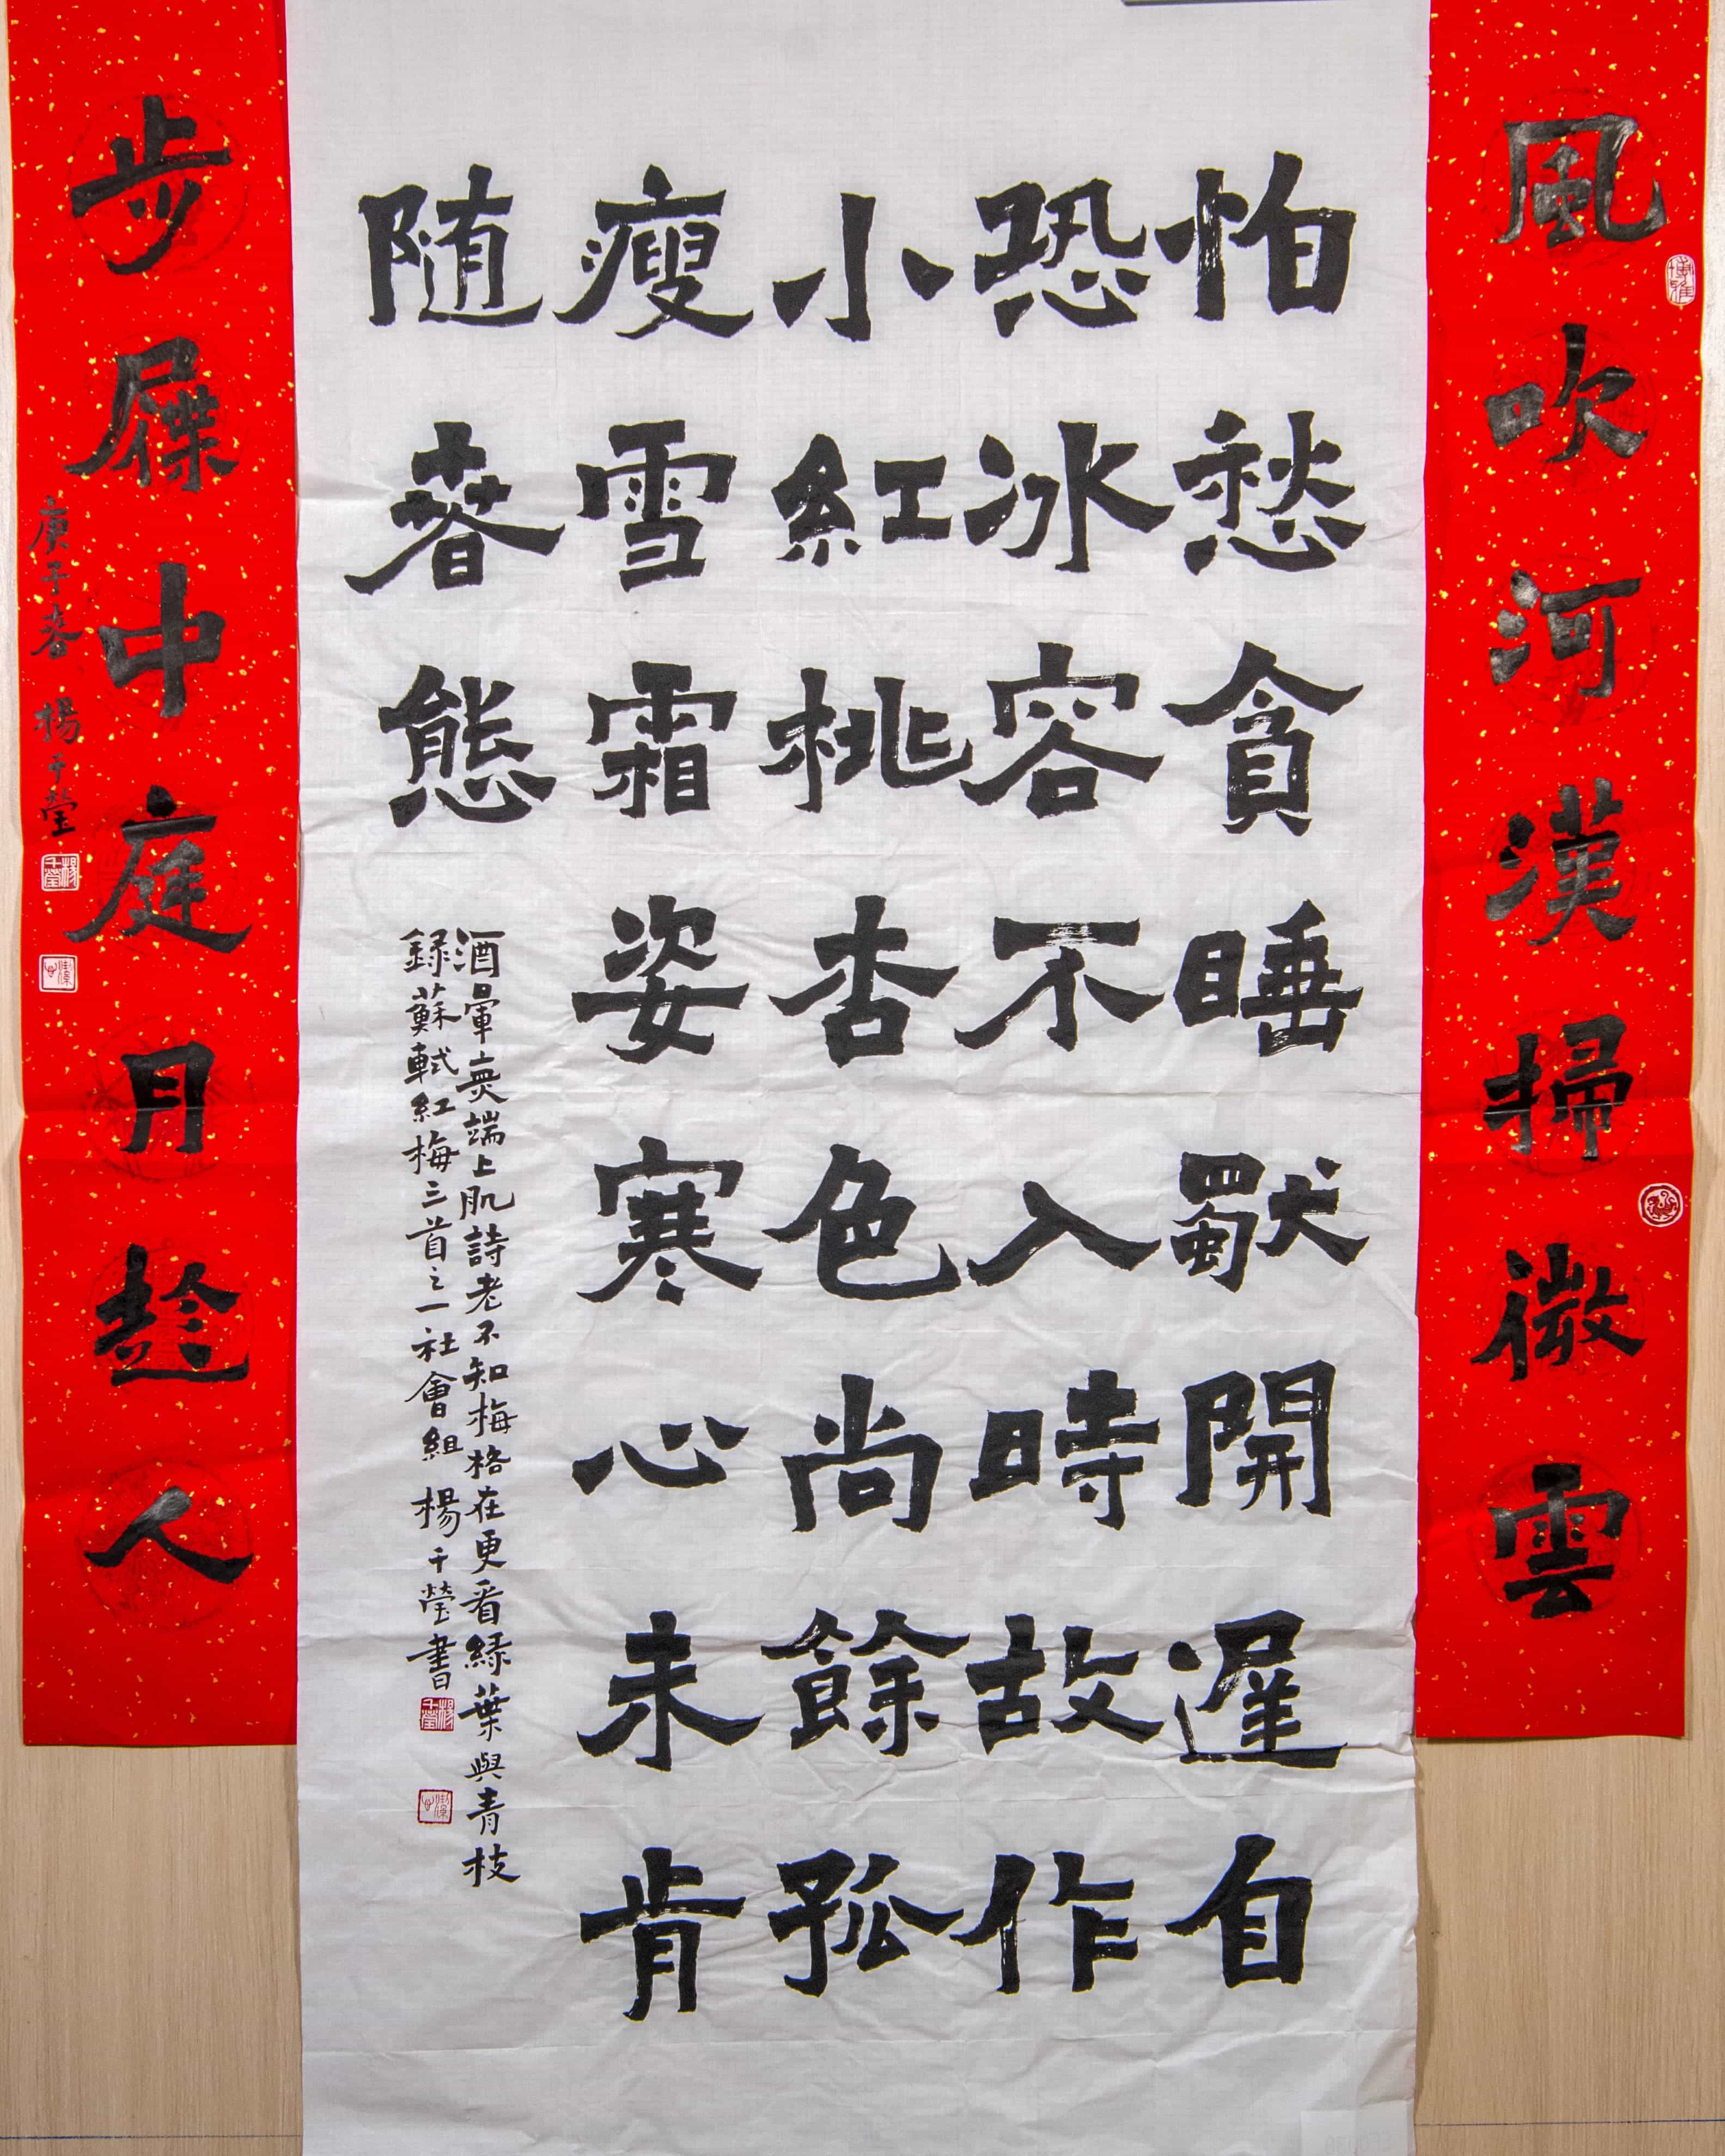 風吹河漢掃微雲
博雅
怕愁貪睡獨開遲自
恐冰容不入時故作
小紅桃杏色尚餘孤
瘦雪霜姿寒心未肯
随春態
酒暈無端上肌詩老不知梅格在更看緑葉與青枝
録蘇軾紅梅三首之一社會組 楊千瑩書
楊千瑩
步屧中庭月趂人
庚子春 楊千瑩
楊千瑩